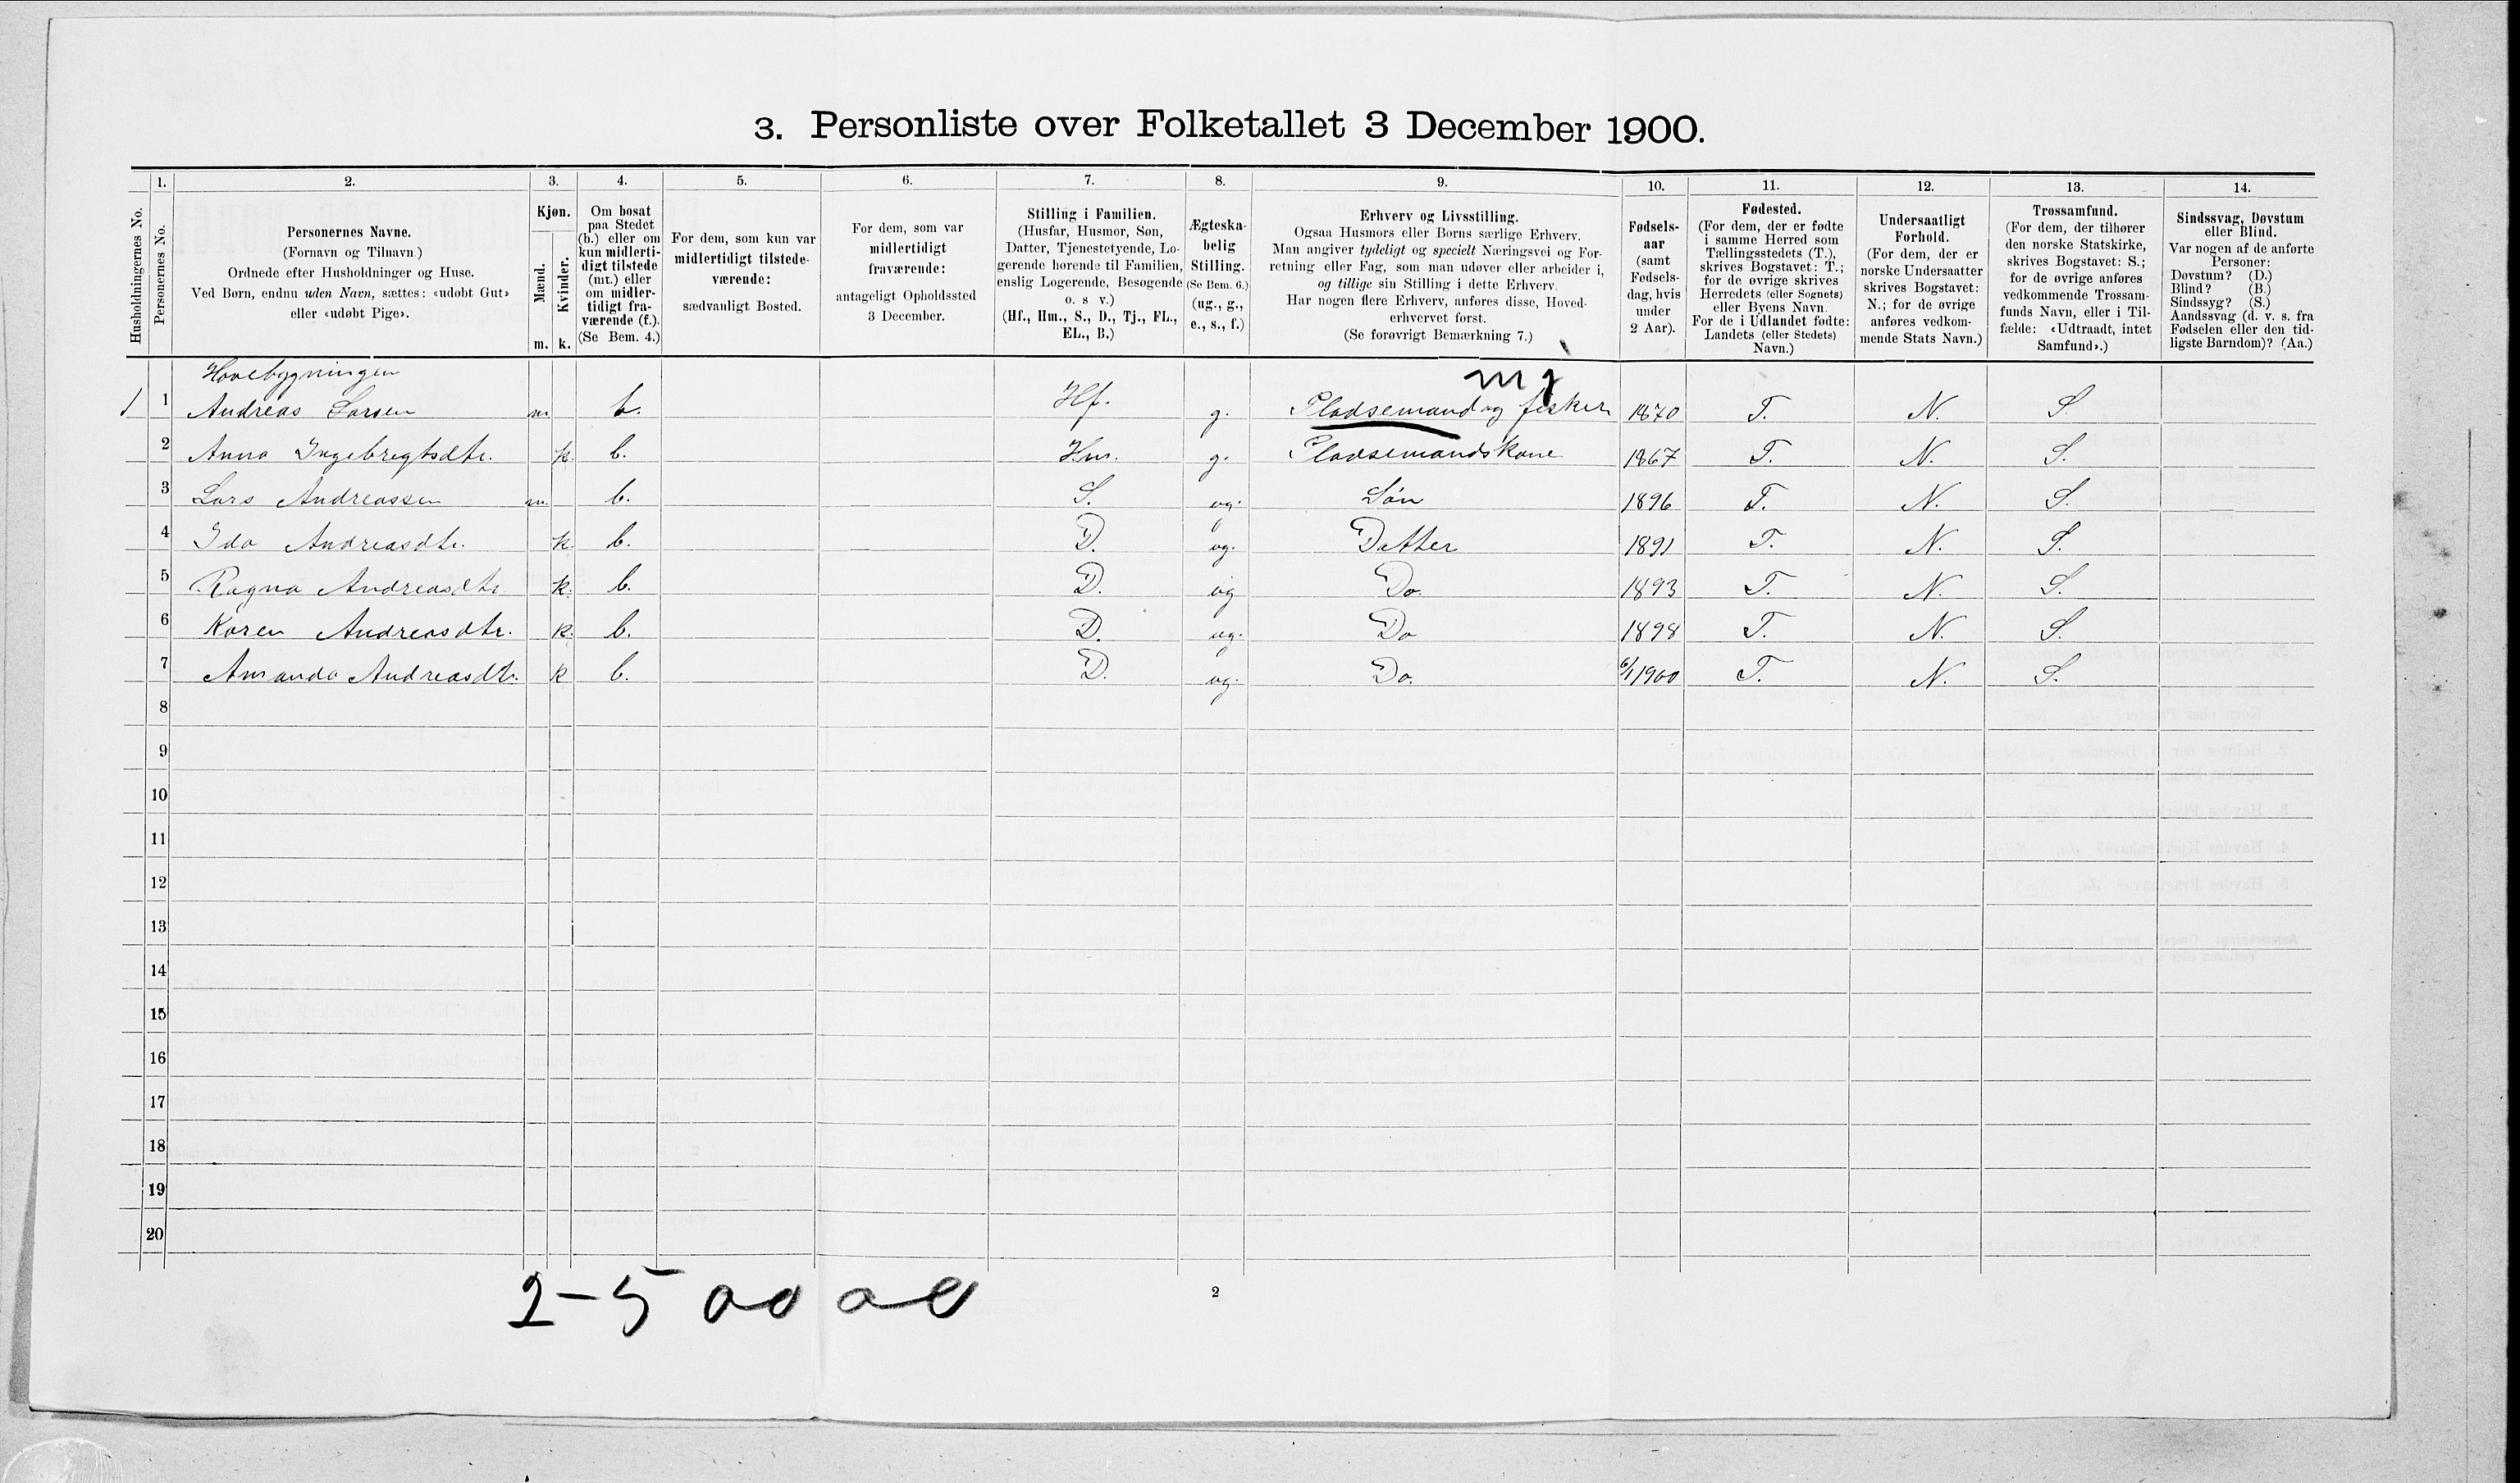 3. Personliste over Folketallet 3 December 1900.
Husholdningernes No.
1.
Personernes No.
2.
Personernes Navne.
(Fornavn og Tilnavn.)
Ordnede efter Husholdninger og Huse.
Ved Børn, endnu uden Navn, sættes: «udøbt Gut»
eller «udøbt Pige».
3.
Kjøn.
Mænd.
Kvinder.
m. k.
4.
Om bosat
paa Stedet
(b.) eller om
kun midlerti-
digt tilstede
(mt.) eller
om midler-
tidigt fra-
værende (f.).
(Se Bem. 4.)
5.
For dem, som kun var
midlertidigt tilstede-
værende:
sædvanligt Bosted.
6.
For dem, som var
midlertidigt
fraværende:
antageligt Opholdssted
3 December.
7.
Stilling i Familien.
(Husfar, Husmor, Søn,
Datter, Tjenestetyende, Lo-
gerende hørende til Familien,
enslig Logerende, Besøgende
o. s v.)
(Hf., Hm., S., D., Tj., FL.,
EL., B.)
8.
Ægteska-
belig
Stilling.
(Se Bem. 6.)
(ug., g.,
e., s., f.)
9.
Erhverv og Livsstilling.
Ogsaa Husmors eller Børns særlige Erhverv.
Man angiver tydeligt og specielt Næringsvei og For-
retning eller Fag, som man udøver eller arbeider i,
og tillige sin Stilling i dette Erhverv.
Har nogen flere Erhverv, anføres disse, Hoved-
erhvervet først.
(Se forøvrigt Bemærkning 7.)
10.
Fødsels-
aar
(samt
Fødsels-
dag, hvis
under
2 Aar).
11.
Fødested.
(For dem, der er fødte
i samme Herred som
Tællingsstedets (T.),
skrives Bogstavet: T.;
for de øvrige skrives
Herredets (eller Sognets)
eller Byens Navn.
For de i Udlandet fødte:
Landets (eller Stedets)
Navn.)
12.
Undersaatligt
Forhold.
(For dem, der er
norske Undersaatter
skrives Bogstavet:
N.; for de øvrige
anføres vedkom-
mende Stats Navn.)
13.
Trossamfund.
(For dem, der tilhører
den norske Statskirke,
skrives Bogstavet: S.;
for de øvrige anføres
vedkommende Trossam-
funds Navn, eller i Til-
fælde: «Udtraadt, intet
Samfund».)
14.
Sindssvag, Døvstum
eller Blind.
Var nogen af de anførte
Personer:
Døvstum? (D.)
Blind? (B.)
Sindssyg? (S.)
Aandssvag (d. v. s. fra
Fødselen eller den tid-
ligste Barndom)? (Aa.)
Hovebygningen
1 1 Andreas Larsen m. b. Hf. g. Pladsemand og fisker 1870 T. N. S.
2 Anna Ingebrigtsdtr. k. b. Hm. g. Pladsemandskone 1867 T. N. S.
3 Lars Andreassen m. b. S. ug. Søn 1896 T. N. S.
4 Ida Andreasdtr. k. b. D. ug. Datter 1891 T. N. S.
5 Ragna Andreasdtr k. b. D. ug Do. 1893 T. N. S.
6 Karen Andreasdtr. k. b. D. ug. Do 1898 T. N. S.
7 Amanda Andreasdtr. k b. D. ug. Do. 6/1 1900 T. N. S.
8
9
10
11
12
13
14
15
16
17
18
19
20
2-5
2